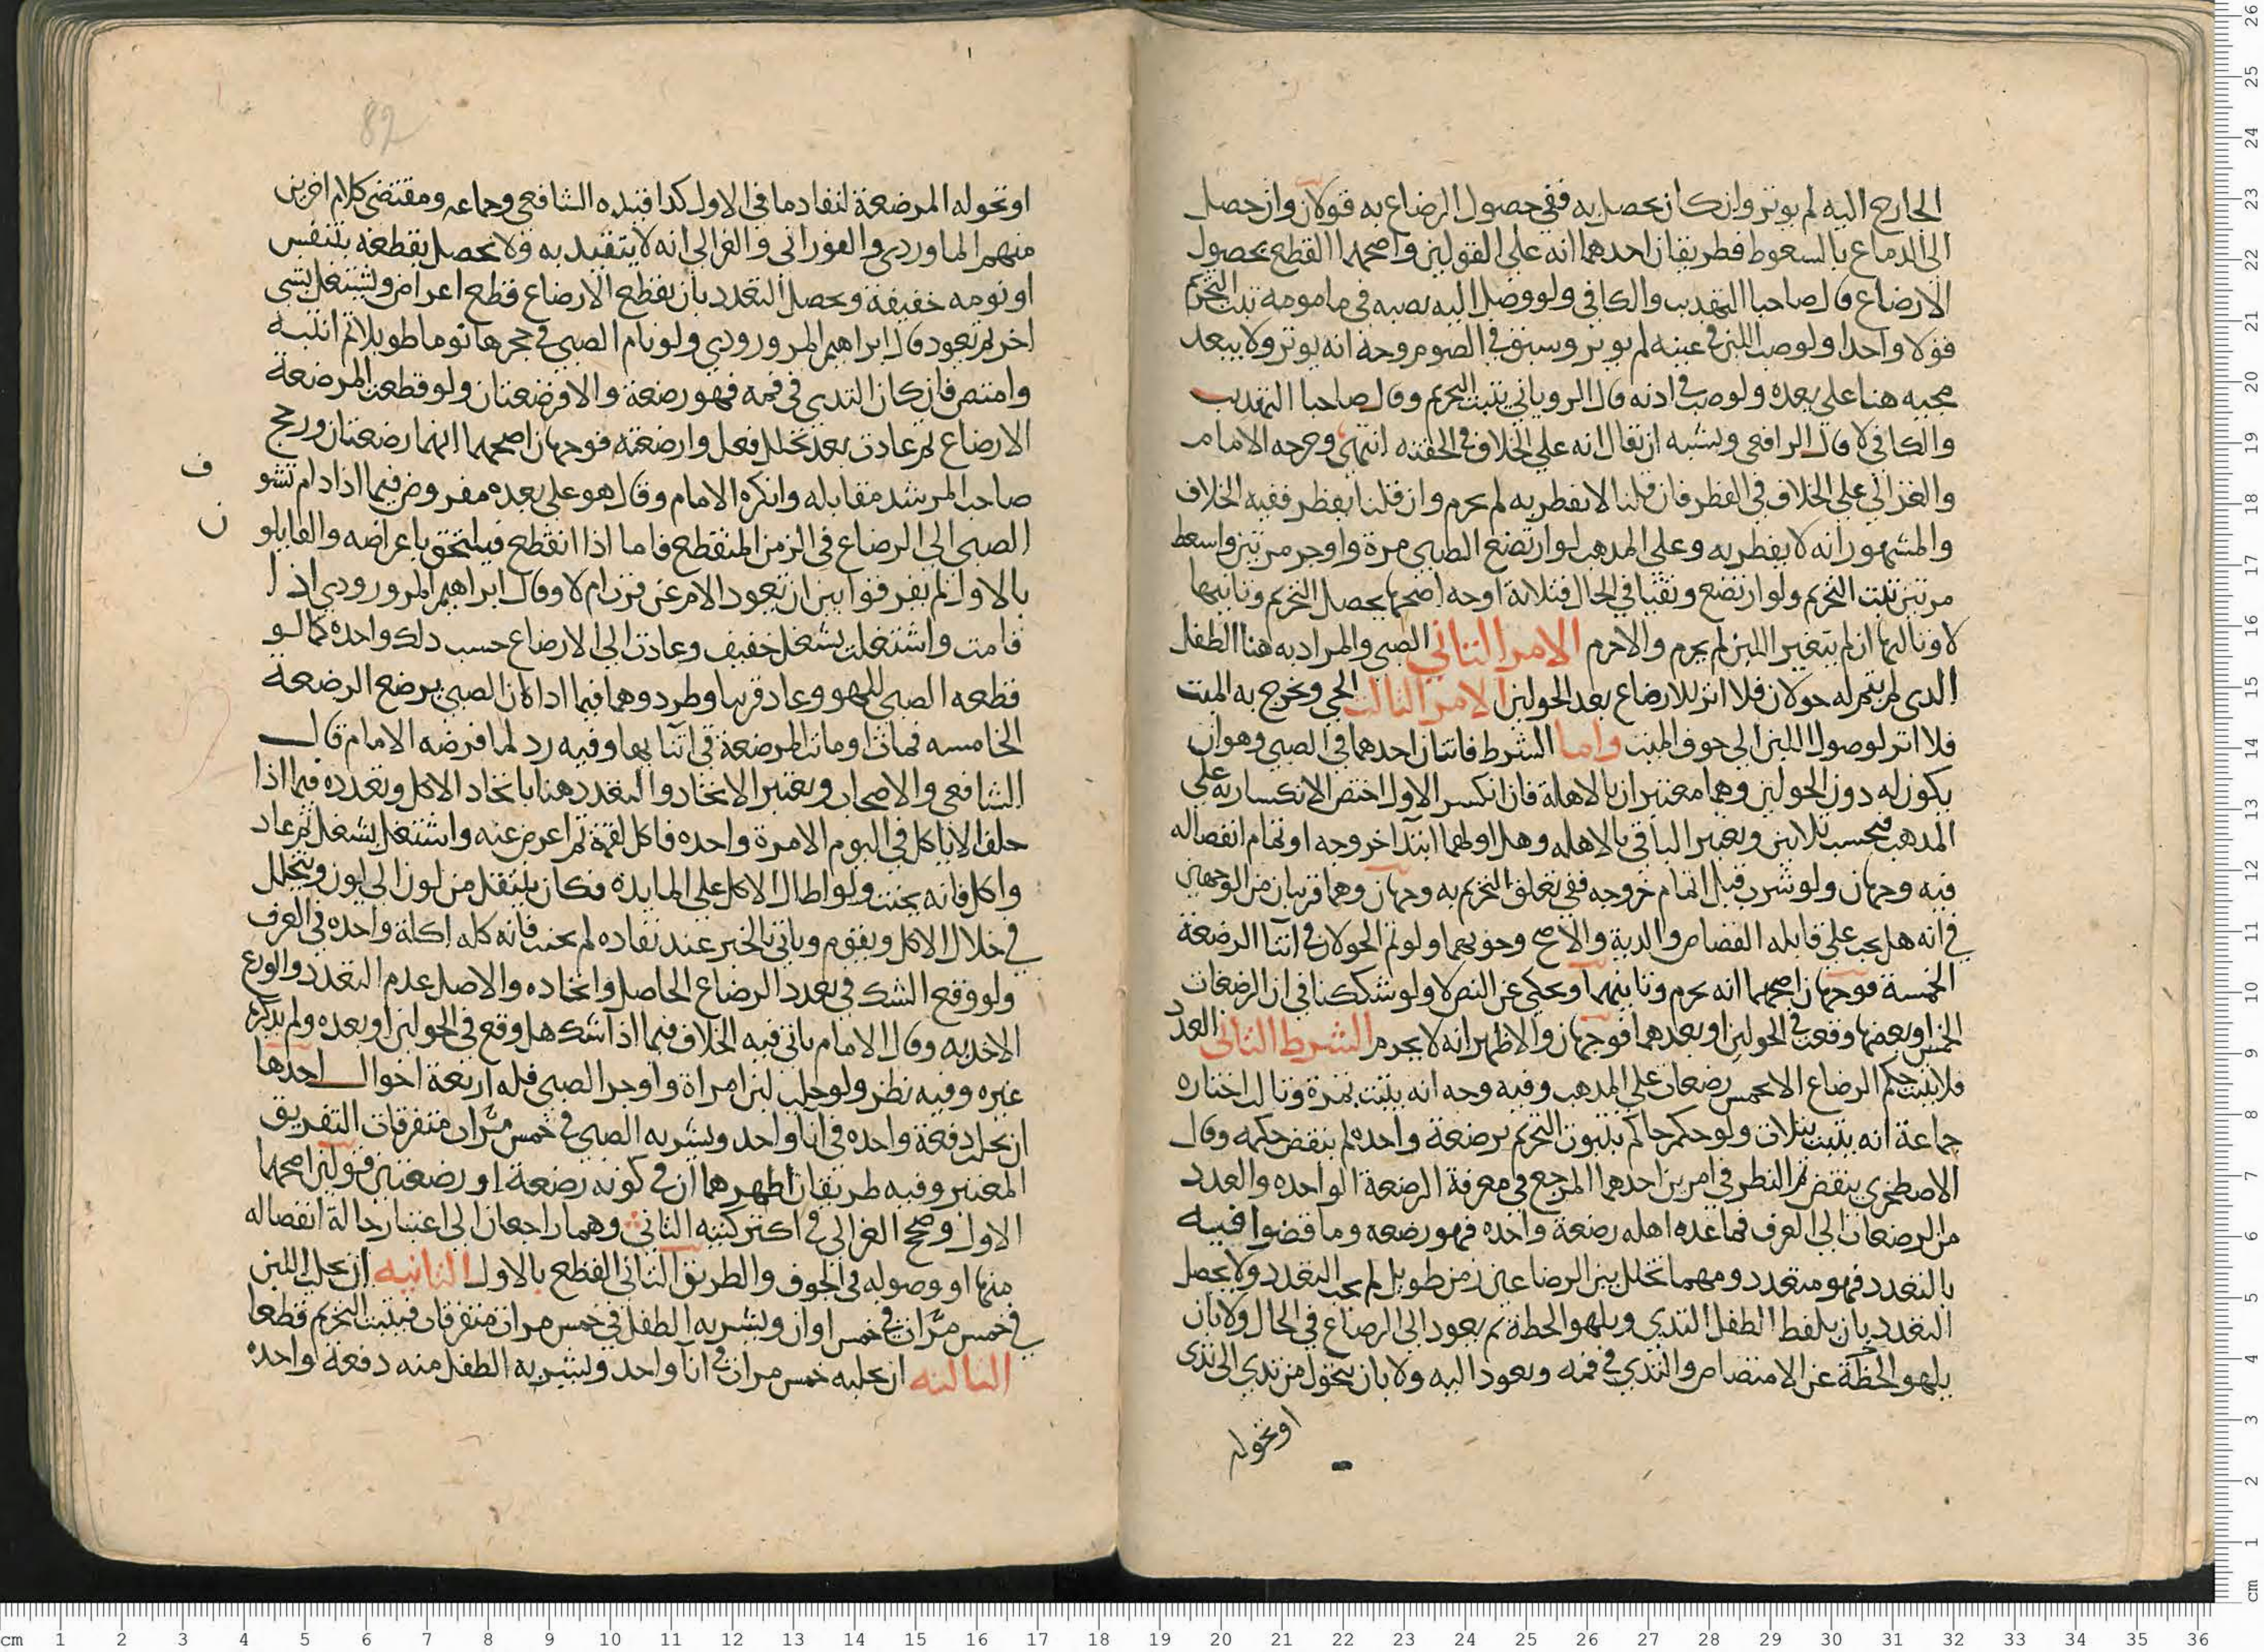 الخارج اليه لم يوثر وان كان يحصل به ففي حصول الرضاع به قولان وان حصل
الى الدماغ بالسعوط فطريقان احدهما انه على القولين واصحهما القطع بحصول
الارضاع قال صاحبا التهديب والكافي ولو وصل اليه بصبه في مامومه ثبت التحريم
قولا واحدا ولو صب اللبن في عينه لم يوثر وسبق في الصوم وجه انه يوثر ولا يبعد
مجيه هنا على بعده ولو صب في اذنه قال الروياني يثبت التحريم وقال صاحبا التهديب
والكافي لا قال الرافعي ويشبه ان يقال انه على الخلاف في الحقنه انتهى وخرجه الامام
والغزالي على الخلاف في الفطر فان قلنا لا يفطر به لم يحرم وان قلنا يفطر ففيه الخلاف
والمشهور انه لا يفطر به وعلى المدهب لو ارتضع الصبي مرة واوجر مرتين واسعط
مرتين ثبت التحريم ولو ارتضع وتقيا في الحال فثلاثة اوجه اصحها يحصل التحريم وثانيها
لا وثالثها ان لم يتغير اللبن لم يحرم والا حرم الامر الثاني الصبي والمراد به هنا الطفل
الدي لم يتم له حولان فلا اثر للارضاع بعد الحولين الامر الثالث الحي ويخرج به الميت
فلا اثر لوصول اللبن الى جوف الميت واما الشرط فاثنان احدهما في الصبي وهو ان
يكون له دون الحولين وهما معتبران بالاهلة فان انكسر الاول اختص الانكسار به على
المدهب فيحسب ثلاثين ويعتبر الباقي بالاهله وهل اولهما ابتدا خروجه او تمام انفصاله
فيه وجهان ولو شرب قبل تمام خروجه ففي تعلق التحريم به وجهان وهما قريبان من الوجهين
في انه هل يجب على قابله القصاص والدية والاصح وجوبهما ولو تم الحولان في اثنا الرضعة
الخمسة فوجهان اصحهما انه يحرم وثانيهما ويحكي عن النص لا ولو شككنا في ان الرضعات
الخمس او بعضها وقعت في الحولين او بعدهما فوجهان والاظهر انه لا يحرم الشرط الثاني العدد
فلا يثبت حكم الرضاع الا بخمس رضعات على المدهب وفيه وجه انه يثبت بمرة وثالث اختاره
جماعة انه يثبت بثلاث ولو حكم حاكم بثبوت التحريم برضعة واحده لم ينقض حكمه وقال
الاصطخري ينقض ثم النظر في امرين احدهما المرجع في معرفة الرضعة الواحده والعدد
من الرضعات الى العرف فما عده اهله رضعة واحده فهو رضعه وما قضوا فيه
بالتعدد فهو متعدد ومهما تخلل بين الرضاعين زمن طويل لم يجب التعدد ولا يحصل
التعدد بان يلفظ الطفل الثدي ويلهو الحظة ثم يعود الى الرضاع في الحال ولا بان
يلهو الحظة عن الامتصاص والثدي في فمه ويعود اليه ولا بان يتحول من ثدي الى ثدي
او تحوله
82
او تحوله المرضعة لنفاد ما في الاول كدا قيده الشافعي وجماعه ومقتضى كلام اخرين
منهم الماوردي والفوراني والغزالي انه لا يتقيد به ولا يحصل بقطعه بتنفس
او نومه خفيفة ويحصل التعدد بان يقطع الارضاع قطع اعراض ويشتغل بشي
اخر ثم يعود قال ابراهيم المرورودي ولو نام الصبي في حجرها نوما طويلا ثم انتبه
وامتص فان كان الثدي في فمه فهو رضعة والا فرضعتان ولو قطعت المرضعة
الارضاع ثم عادت بعد تخلل فعل وارضعته فوجهان اصحهما انهما رضعتان ورجح
صاحب المرشد مقابله وانكره الامام وقال هو على بعده مفروض فيما اذا دام تشو
ف
الصبي الى الرضاع في الزمن المنقطع فاما اذا انقطع فيلتحق باعراضه والقايلو
ن
بالاول لم يفرقوا بين ان يعود الامر عن قرب ام لا وقال ابراهيم المرورودي اذا
قامت واشتغلت بشغل خفيف وعادت الى الارضاع حسب دلك واحده كما لو
قطعه الصبي للهو وعاد قريبا وطرد وهما فيما ادا كان الصبي يرضع الرضعة
الخامسه فمات او ماتت المرضعة في اثنايها وفيه رد لما فرضه الامام قال
الشافعي والاصحاب ويعتبر الاتحاد والتعدد هنا باتحاد الاكل وتعدده فيما اذا
حلف لا ياكل في اليوم الا مرة واحده فاكل لقمة ثم اعرض عنه واشتغل بشغل ثم عاد
واكل فانه يحنث ولو اطال الاكل على المايده فكان ينتقل من لون الى لون ويتخلل
في خلال الاكل ويقوم وياتي بالخبز عند نفاده لم يحنث فانه كله اكلة واحده في العرف
ولو وقع الشك في تعدد الرضاع الحاصل واتحاده والاصل عدم التعدد والورع
الاخد به وقال الامام ياتي فيه الخلاف فيما اذا شك هل وقع في الحولين او بعده ولم يذكره
غيره وفيه نظر ولو حلب لبن امراة واوجر الصبي فله اربعة احوال احدها
ان يحلب دفعة واحده في انا واحد ويشربه الصبي في خمس مرات متفرقات التفريق
المعتبر وفيه طريقان اظهرهما ان في كونه رضعة او رضعتين قولين اصحهما
الاول وصحح الغزالي في اكثر كتبه الثاني وهما راجعان الى اعتبار حالة انفصاله
منها او وصوله في الجوف والطريق الثاني القطع بالاول الثانيه ان يحلب اللبن
في خمس مرات في خمس اوان ويشربه الطفل في خمس مرات متفرقات فيثبت التحريم قطعا
الثالثه ان يحلبه خمس مرات في انا واحد ويشربه الطفل منه دفعة واحده